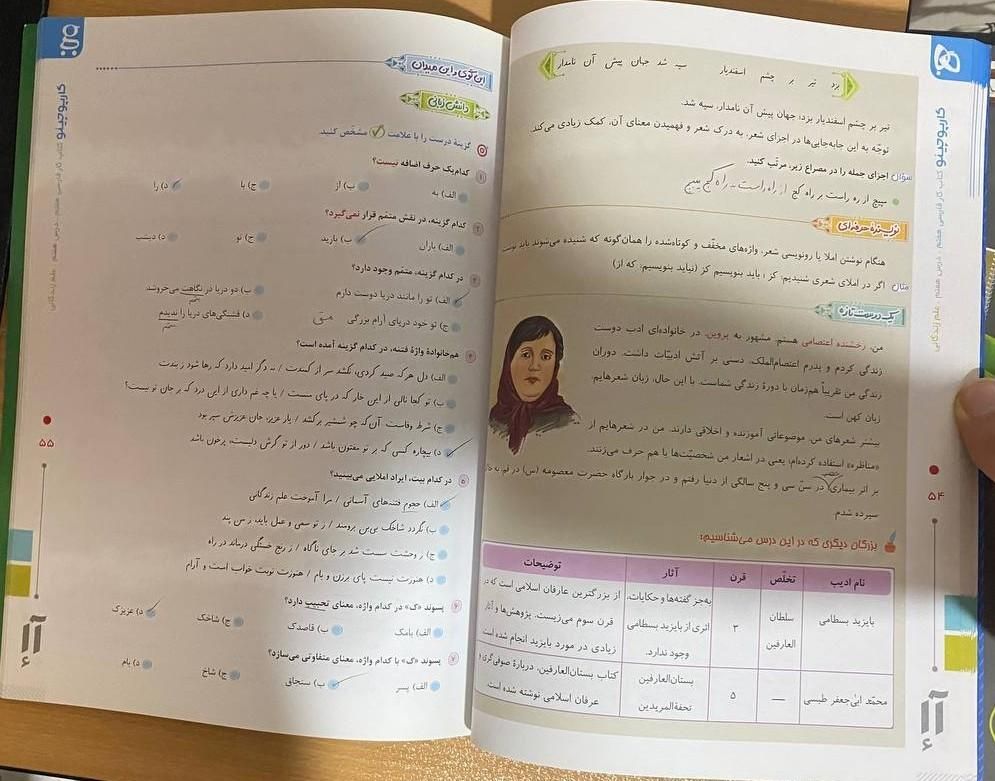 بزد تیر بر چشم اسفندیار سیه شد جهان پیش آن نامدار
تیر بر چشم اسفندیار بزد؛ جهان پیش آن نامدار، سیه شد.
توجّه به این جابه‌جایی‌ها در اجزای شعر، به درک شعر و فهمیدن معنای آن، کمک زیادی می‌کند.
سؤال اجزای جمله را در مصراع زیر، مرتّب کنید.
مپیچ از ره راست بر راه کج از راه راست به راه کج مپیچ
نویسندهٔ حرفه‌ای
هنگام نوشتن املا یا رونویسی شعر، واژه‌های مخفّف و کوتاه‌شده را همان‌گونه که شنیده می‌شوند باید نوشت
مثال اگر در املای شعری شنیدیم: کز ؛ باید بنویسیم کز (نباید بنویسیم: که از)
یک دوست تازه
من، رخشنده اعتصامی هستم. مشهور به پروین. در خانواده‌ای ادب دوست
زندگی کردم و پدرم اعتصام‌الملک، دستی بر آتش ادبیّات داشت. دوران
زندگی من تقریباً هم‌زمان با دورهٔ زندگی شماست. با این حال، زبان شعرهایم،
زبان کهن است.
بیشتر شعرهای من، موضوعاتی آموزنده و اخلاقی دارند. من در شعرهایم از
«مناظره» استفاده کرده‌ام، یعنی در اشعار من شخصیّت‌ها با هم حرف می‌زنند.
بر اثر بیماری در سنّ سی و پنج سالگی از دنیا رفتم و در جوار بارگاه حضرت معصومه (س) در قم به خاک
سپرده شدم.
بزرگان دیگری که در این درس می‌شناسیم:
نام ادیب تخلّص قرن آثار توضیحات
بایزید بسطامی سلطان العارفین ۳ به‌جز گفته‌ها و حکایات، اثری از بایزید بسطامی وجود ندارد. از بزرگترین عارفان اسلامی است که در قرن سوم می‌زیست. پژوهش‌ها و آثار زیادی در مورد بایزید انجام شده است
محمّد ابی جعفر طبسی — ۵ بستان‌العارفین تحفةالمریدین کتاب بستان‌العارفین، دربارهٔ صوفی‌گری و عرفان اسلامی نوشته شده است.
کارپوچینو کتاب کار فارسی هفتم، درس هفتم، علم زندگانی
۵۴
این گوی و این میدان
دانش زبانی
گزینهٔ درست را با علامت مشخّص کنید.
۱ کدام‌یک حرف اضافه نیست؟
الف) به ب) از ج) با د) را
۲ کدام گزینه، در نقش متمّم قرار نمی‌گیرد؟
الف) باران ب) بارید ج) تو د) دیشب
۳ در کدام گزینه، متمّم وجود دارد؟
الف) تو را مانند دریا دوست دارم ب) دو دریا در نگاهت می‌خروشد
ج) تو خود دریای آرام بزرگی د) قشنگی‌های دریا را ندیدم
۴ هم‌خانوادهٔ واژهٔ فتنه، در کدام گزینه آمده است؟
الف) دل هر که صید کردی، نکشد سر از کمندت / نه دگر امید دارد که رها شود ز بندت
ب) تو کجا نالی از این خار که در پای منست / یا چه غم داری از این درد که بر جان تو نیست؟
ج) شرط وفاست آن‌که چو شمشیر برکشد / یار عزیز، جان عزیزش سپر بود
د) بیچاره کسی که بر تو مفتون باشد / دور از تو گرش دلیست، پرخون باشد
۵ در کدام بیت، ایراد املایی می‌بینید؟
الف) حجوم فتنه‌های آسمانی / مرا آموخت علم زندگانی
ب) نگردد شاخک بی‌بن برومند / ز تو سعی و عمل باید، ز من پند
ج) ز وحشت سست شد بر جای ناگاه / ز رنج خستگی درماند در راه
د) هنورت نیست پای برزن و بام / هنوزت نوبت خواب است و آرام
۶ پسوند «ک» در کدام واژه، معنای تحبیب دارد؟
الف) بامک ب) قاصدک ج) شاخک د) عزیزک
۷ پسوند «ک» با کدام واژه، معنای متفاوتی می‌سازد؟
الف) پسر ب) سنجاق ج) شاخ د) بام
کارپوچینو کتاب کار فارسی هفتم، درس هفتم، علم زندگانی
۵۵